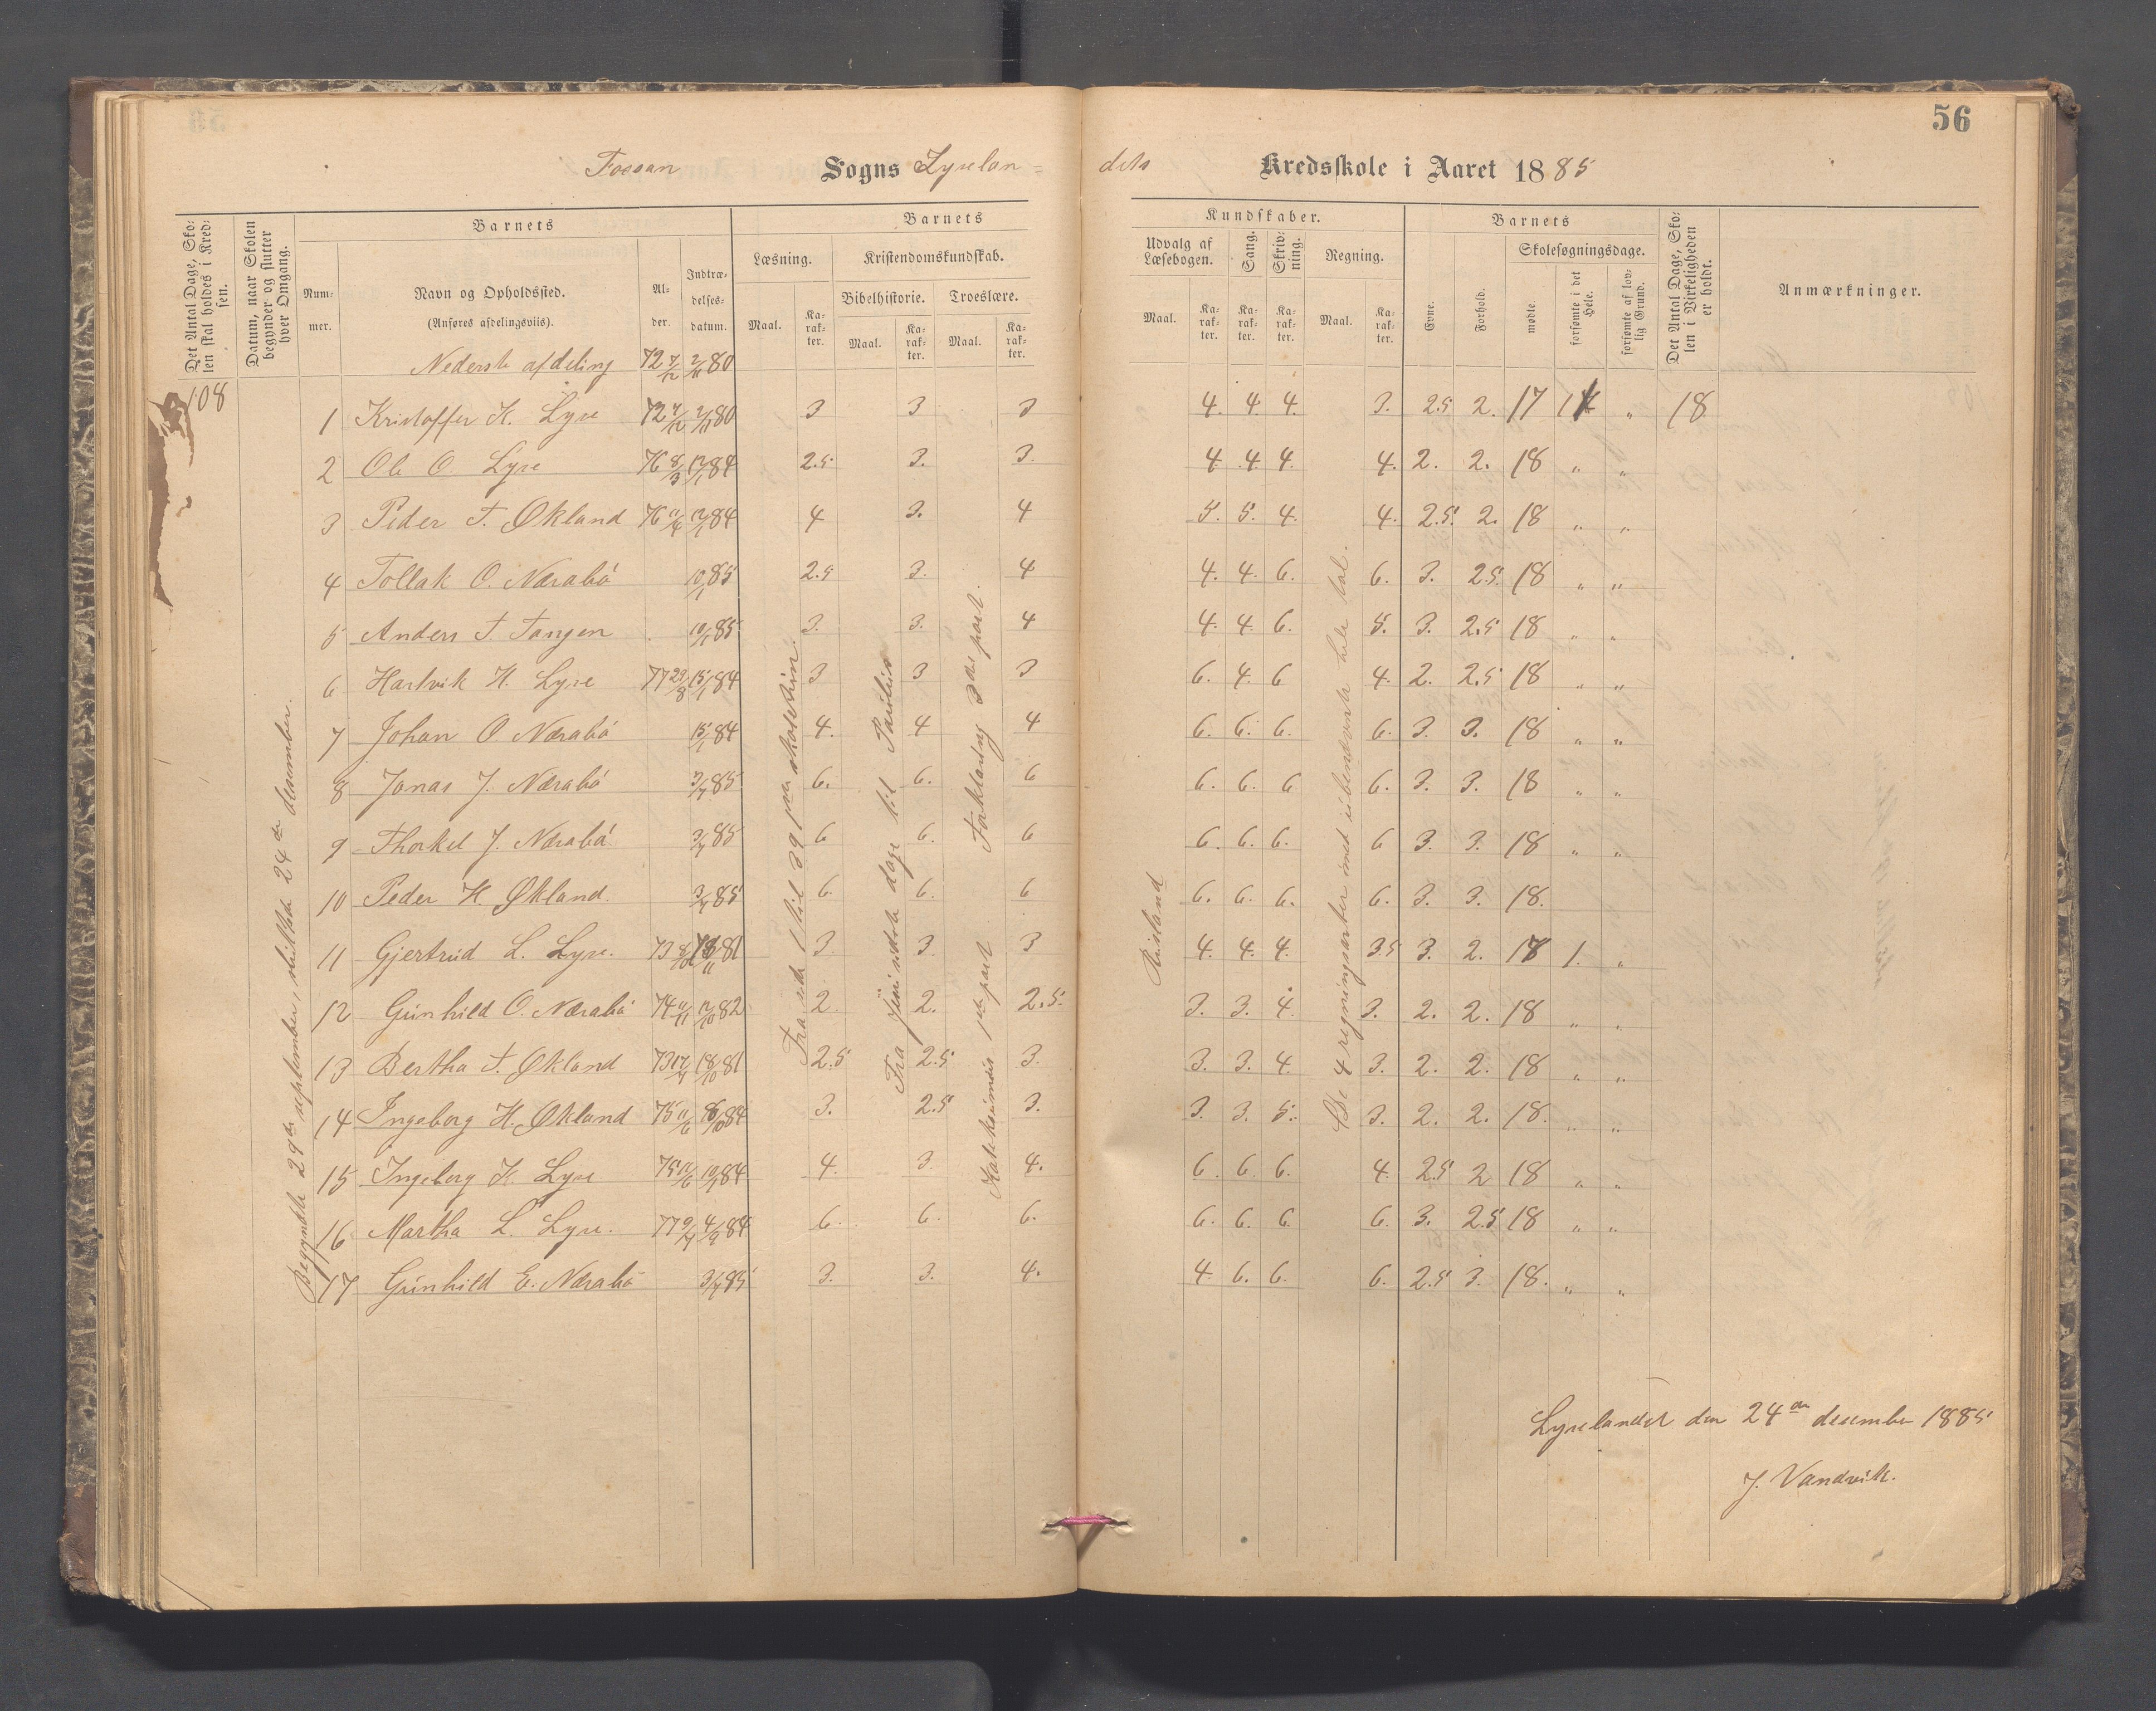 56
Fossan Sogns Lyselan=
dets Kredsskole i Aaret 1885
Det Antal Dage, Skolen skal holdes i Kredsen.
Datum, naar Skolen begynder og slutter hver Omgang.
Barnets
Nummer.
Navn og Opholdssted.
(Anføres afdelingsviis).
Alder.
Indtrædelsesdatum.
Barnets
Læsning.
Maal.
Karakter.
Kristendomskundskab.
Bibelhistorie.
Maal.
Karakter.
Troeslære.
Maal.
Karakter.
Kundskaber.
Udvalg af Læsebogen.
Maal.
Karakter.
Sang.
Karakter.
Skrivning.
Karakter.
Regning.
Maal.
Karakter.
Barnets
Evne.
Forhold.
Skolesøgningsdage.
mødte
forsømte i det Hele.
forsømte af lovlig Grund.
Det Antal Dage, Skolen i Virkeligheden er holdt.
Anmærkninger.
Nederste afdeling 72 4/12 2/11 80
108
1 Kristoffer K. Lyse 72 4/12 2/11 80 3 3 3 4. 4. 4. 3. 2.5 2. 17 1 " 18
2 Ole O. Lyse 76 8/3 12/1 84 2.5 3. 3. 4 4 4. 4. 2. 2. 18 " "
3 Peder T. Økland 76 11/4 12/1 84 4 3. 4 5. 5. 4. 4. 2.5. 2. 18 " "
4 Tollak O. Nærabø 10/1 85 2.5 3. 4 4. 4. 6. 6. 3. 2.5. 18 " "
5 Anders T. Tangen 10/1 85 3. 3. 4 4. 4. 6. 5. 3. 2.5 18 " "
6 Hartvik H. Lyse 77 29/8 15/1 84 3 3 3 6. 4. 6 4. 2. 2.5 18 " "
7 Johan O. Nærabø 15/1 84 4. 4 4 6. 6. 6. 6. 3. 3. 18 " "
8 Jonas J. Nærabø 3/7 85 6. 6. 6 6. 6. 6 6. 3. 3. 18 " "
9 Thorkel J. Nærabø 3/7 85 6 6. 6 6. 6. 6. 6 3. 3. 18 " "
10 Peder H. Økland. 3/7 85 6. 6. 6 6. 6. 6. 6. 3. 3. 18.
11 Gjertrud L. Lyse. 73 81 3. 3. 3 4. 4. 4. 3.5 3. 2. 17 1. "
12 Gunhild O. Nærabø 74 11/11 12/10 82 2. 2. 2.5. 3. 3. 4. 3. 2. 2. 18 " "
13 Bertha T. Økland 73 18/10 81 2.5 2.5 3. 3. 3. 4. 3. 2. 2. 18 " "
14 Ingeborg H. Økland 75 11/6 84 3. 2.5 3. 3. 3. 5. 3. 2. 2. 18. " "
15 Ingeborg K. Lyse 75 84 4. 3. 4. 6. 6. 6. 4. 2.5 2 18 " "
16 Martha L. Lyse. 77 9/4 4/8 84 6. 6. 6. 6. 6. 6. 6. 3. 2.5 18 " "
17 Gunhild E. Nærabø 3/7 85 3. 3. 4. 4. 6. 6. 6. 2.5 3. 18. " "
Begyndte 29de september, sluttede 24de desember.
Fra side 1 til 39 paa skoletim.
Fra jøissdste dage til Paulus
Katekismus 1ste part Forklaring 3die part.
Rusland
De 4 regningsarter med ubenævnte hele tal.
Lyselandet den 24de desember 1885
J. Vandvik.